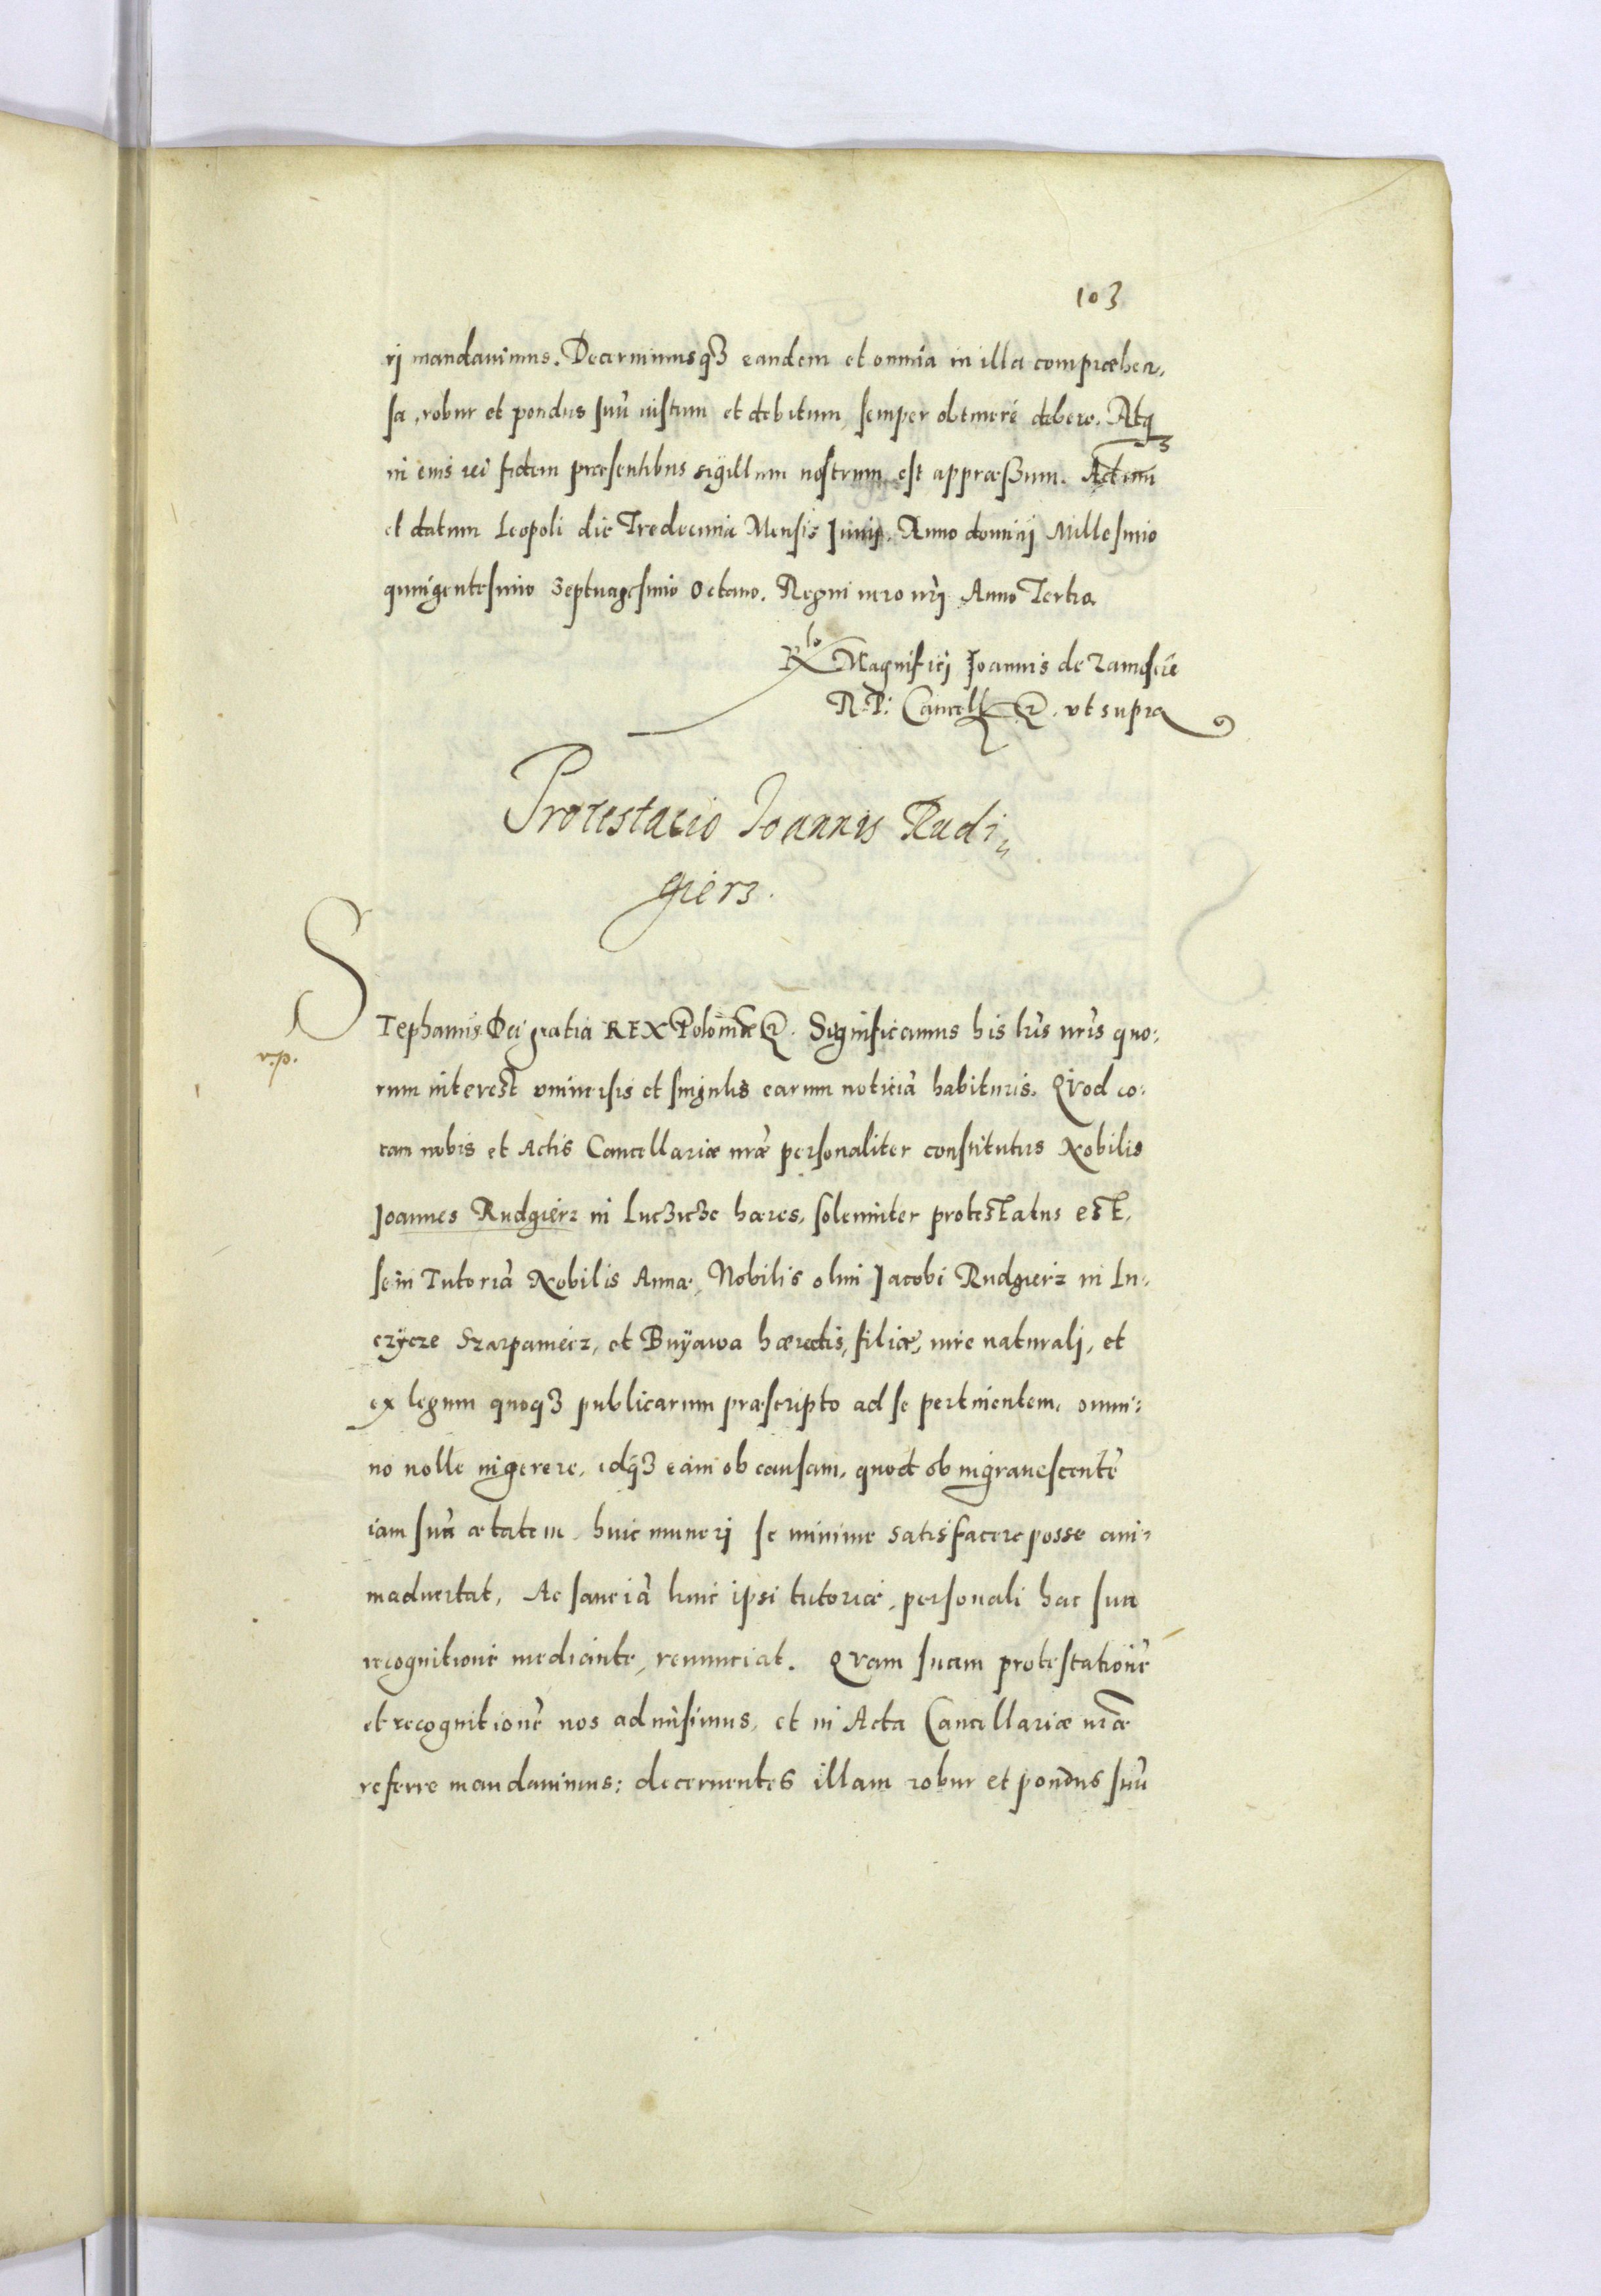 103
rj mandavimus. Decernimusqȝ eandem et omnia in illa compræhen,
sa, robur et pondus suũ iustum et debitum, semper obtinere debere. Atqȝ
in eius rei fidem præsentibus sigillum nostrum est appræssum. Actum
et datum Leopoli die Tredecima Mensis Junij. Anno dominij Millesimo
quingentesimo Septuagesimo Octavo. Regni vero nrj Anno Tertio
Rlo Magnifici Joannis de Zamoscie
R. P. Cancell etc. ut supra
Protestacio Joannis Rudi„
gierz.
Stephanus Dei gratia REX Poloniæ etc. Significamus his lris nris quo:
v.p.
rum interest universis et singulis earum noticiã habituris. Qvod co:
ram nobis et Actis Cancellariæ nræ personaliter constitutus Nobilis
Joannes Rudgierz in Luczicze hæres, solemniter protestatus est,
se in Tutoriã Nobilis Annæ, Nobilis olim Jacobi Rudgierz in Lu:
czÿcze Szarpaniecz, et Buÿawa hæredis, filiæ, iure naturali, et
ex legum quoqȝ publicarum præscripto ad se pertinentem, omni:
no nolle ingerere, idqȝ eam ob causam, quod ob ingravescentẽ
iam suã ætatem, huic munerj se minime satisfacere posse ani:
madvertat, Ac sane iã huic ipsi tutoriæ, personali hac sua
recognitione mediante, renunciat. Qvam suam protestationẽ
et recognitionẽ nos admisimus, et in Acta Cancellariæ nræ
referre mandavimus: decernentes illam robur et pondus suũ